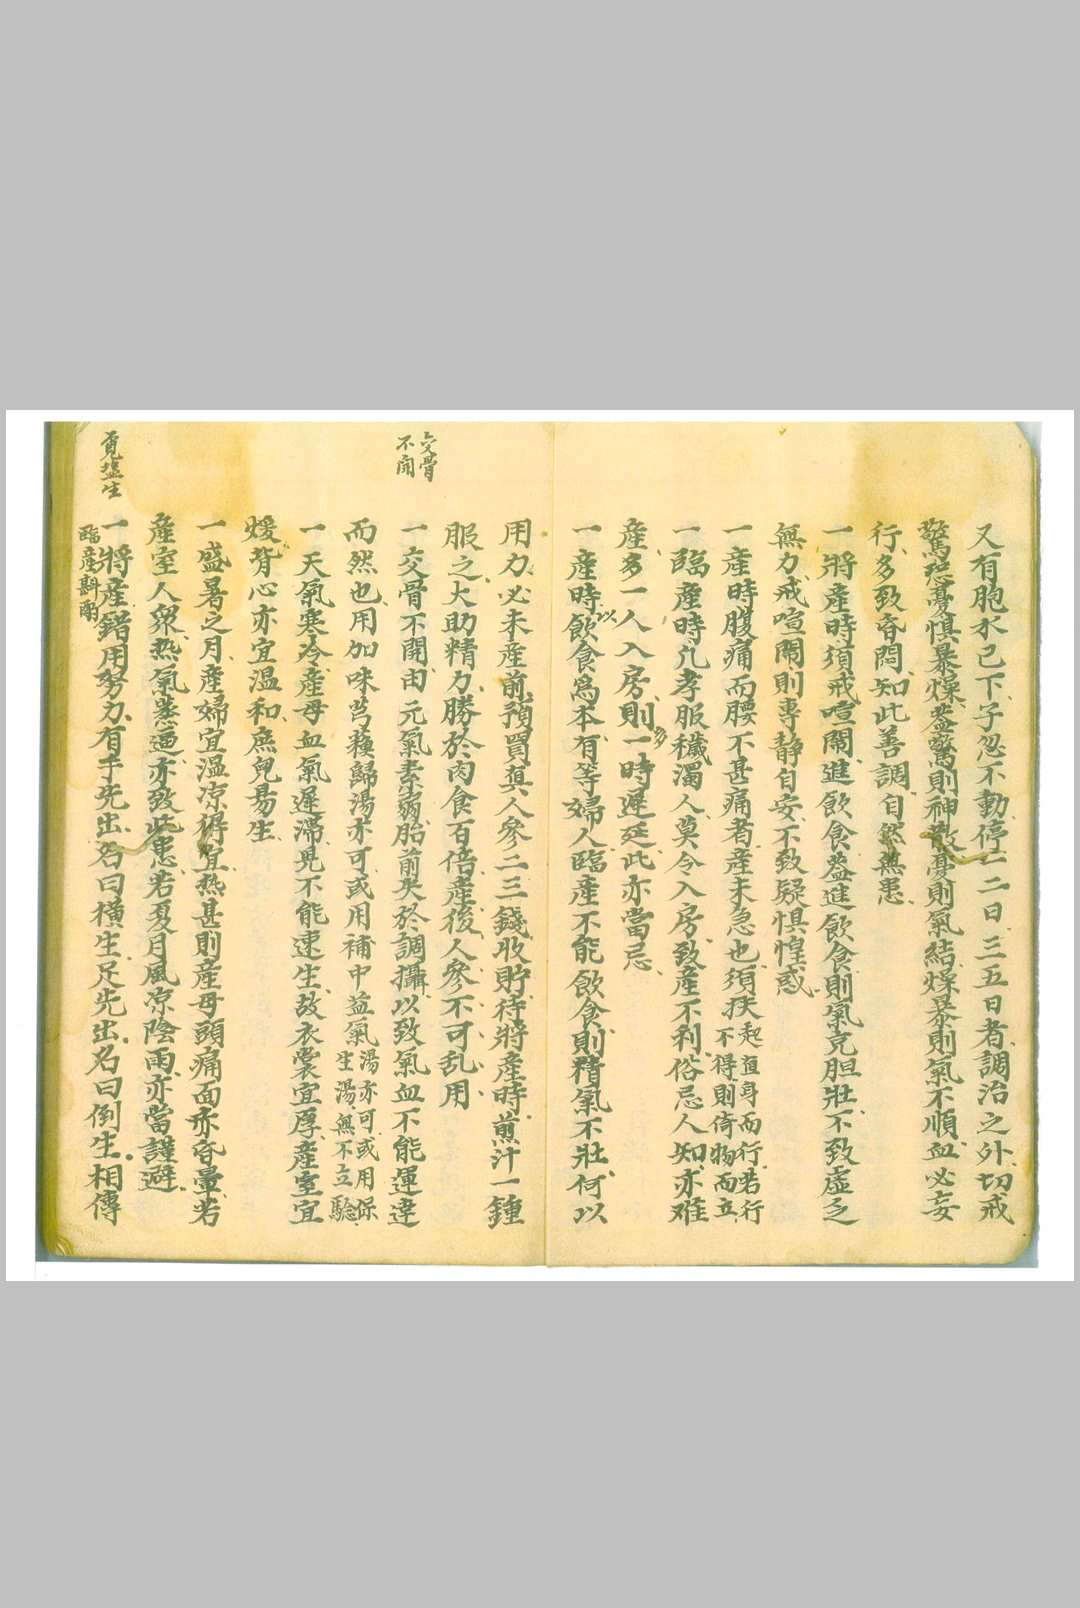 又有胞水已下子忽不動停一二日三五日者調治之外切戒
驚恐憂惧暴燥盖驚則神散憂則氣結燥暴則氣不順血必妄
行多致昏悶知此善調自然無患
一將産時須戒喧鬧進飲食盖進飲食則氣克胆壯不致虛乏
無力戒喧鬧則專靜自安不致疑惧惶惑
一産時腹痛而腰不甚痛者産未急也須扶起直身而行若行
不得則倚物而立
一臨産時凡孝服穢濁人莫令入房致産不利俗忌人知亦难
産多一人入房則多一時遲延此亦當忌
一産時以飲食爲本有等婦人臨産不能飲食則精氣不壯何以
用力必未産前預買真人參二三錢收貯待將産時煎汁一鍾
服之大助精力勝於肉食百倍産後人參不可乱用
交骨
不開
一交骨不開由元氣素弱胎前失於調攝以致氣血不能運達
而然也用加味芎歸湯亦可或用補中益氣湯亦可或用保
生湯無不立驗
一天氣寒冷産母血氣遲滯見不能速生故衣裳宜厚産室宜
煖背心亦宜温和庶兒易生
一盛暑之月産婦宜温凉得宜热甚則産母頭痛面赤昏暈若
産室人衆热氣蒸逼亦致此患若夏月風凉陰雨亦當謹避
覓塩生
一將産錯用努力有手先出名曰橫生足先出名曰倒生相傳
臨産斟酌